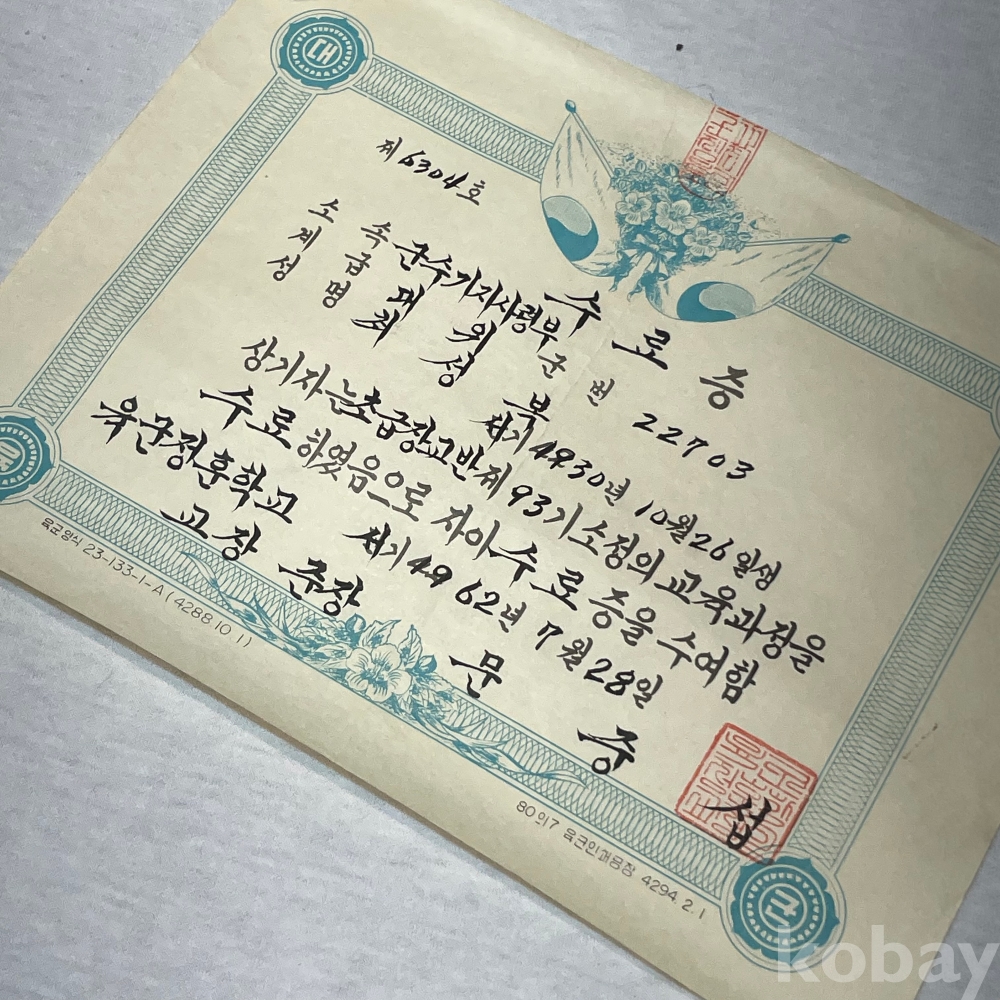 제6304호
수료증
소속 군수기지사령부
계급 대위 군번 22703
성명 최성부 서기4930년 10월26일생
상기자는초급장교반제93기소정의 교육과정을
수료하였음으로 자이수료증을 수여함
서기4962년 7월28일
육군정훈학교
교장 준장 문중섭
육군양식 23-133-1-A (4288.10.1)
80의7 육군인쇄공장 4294.2.1
대
군
kobay